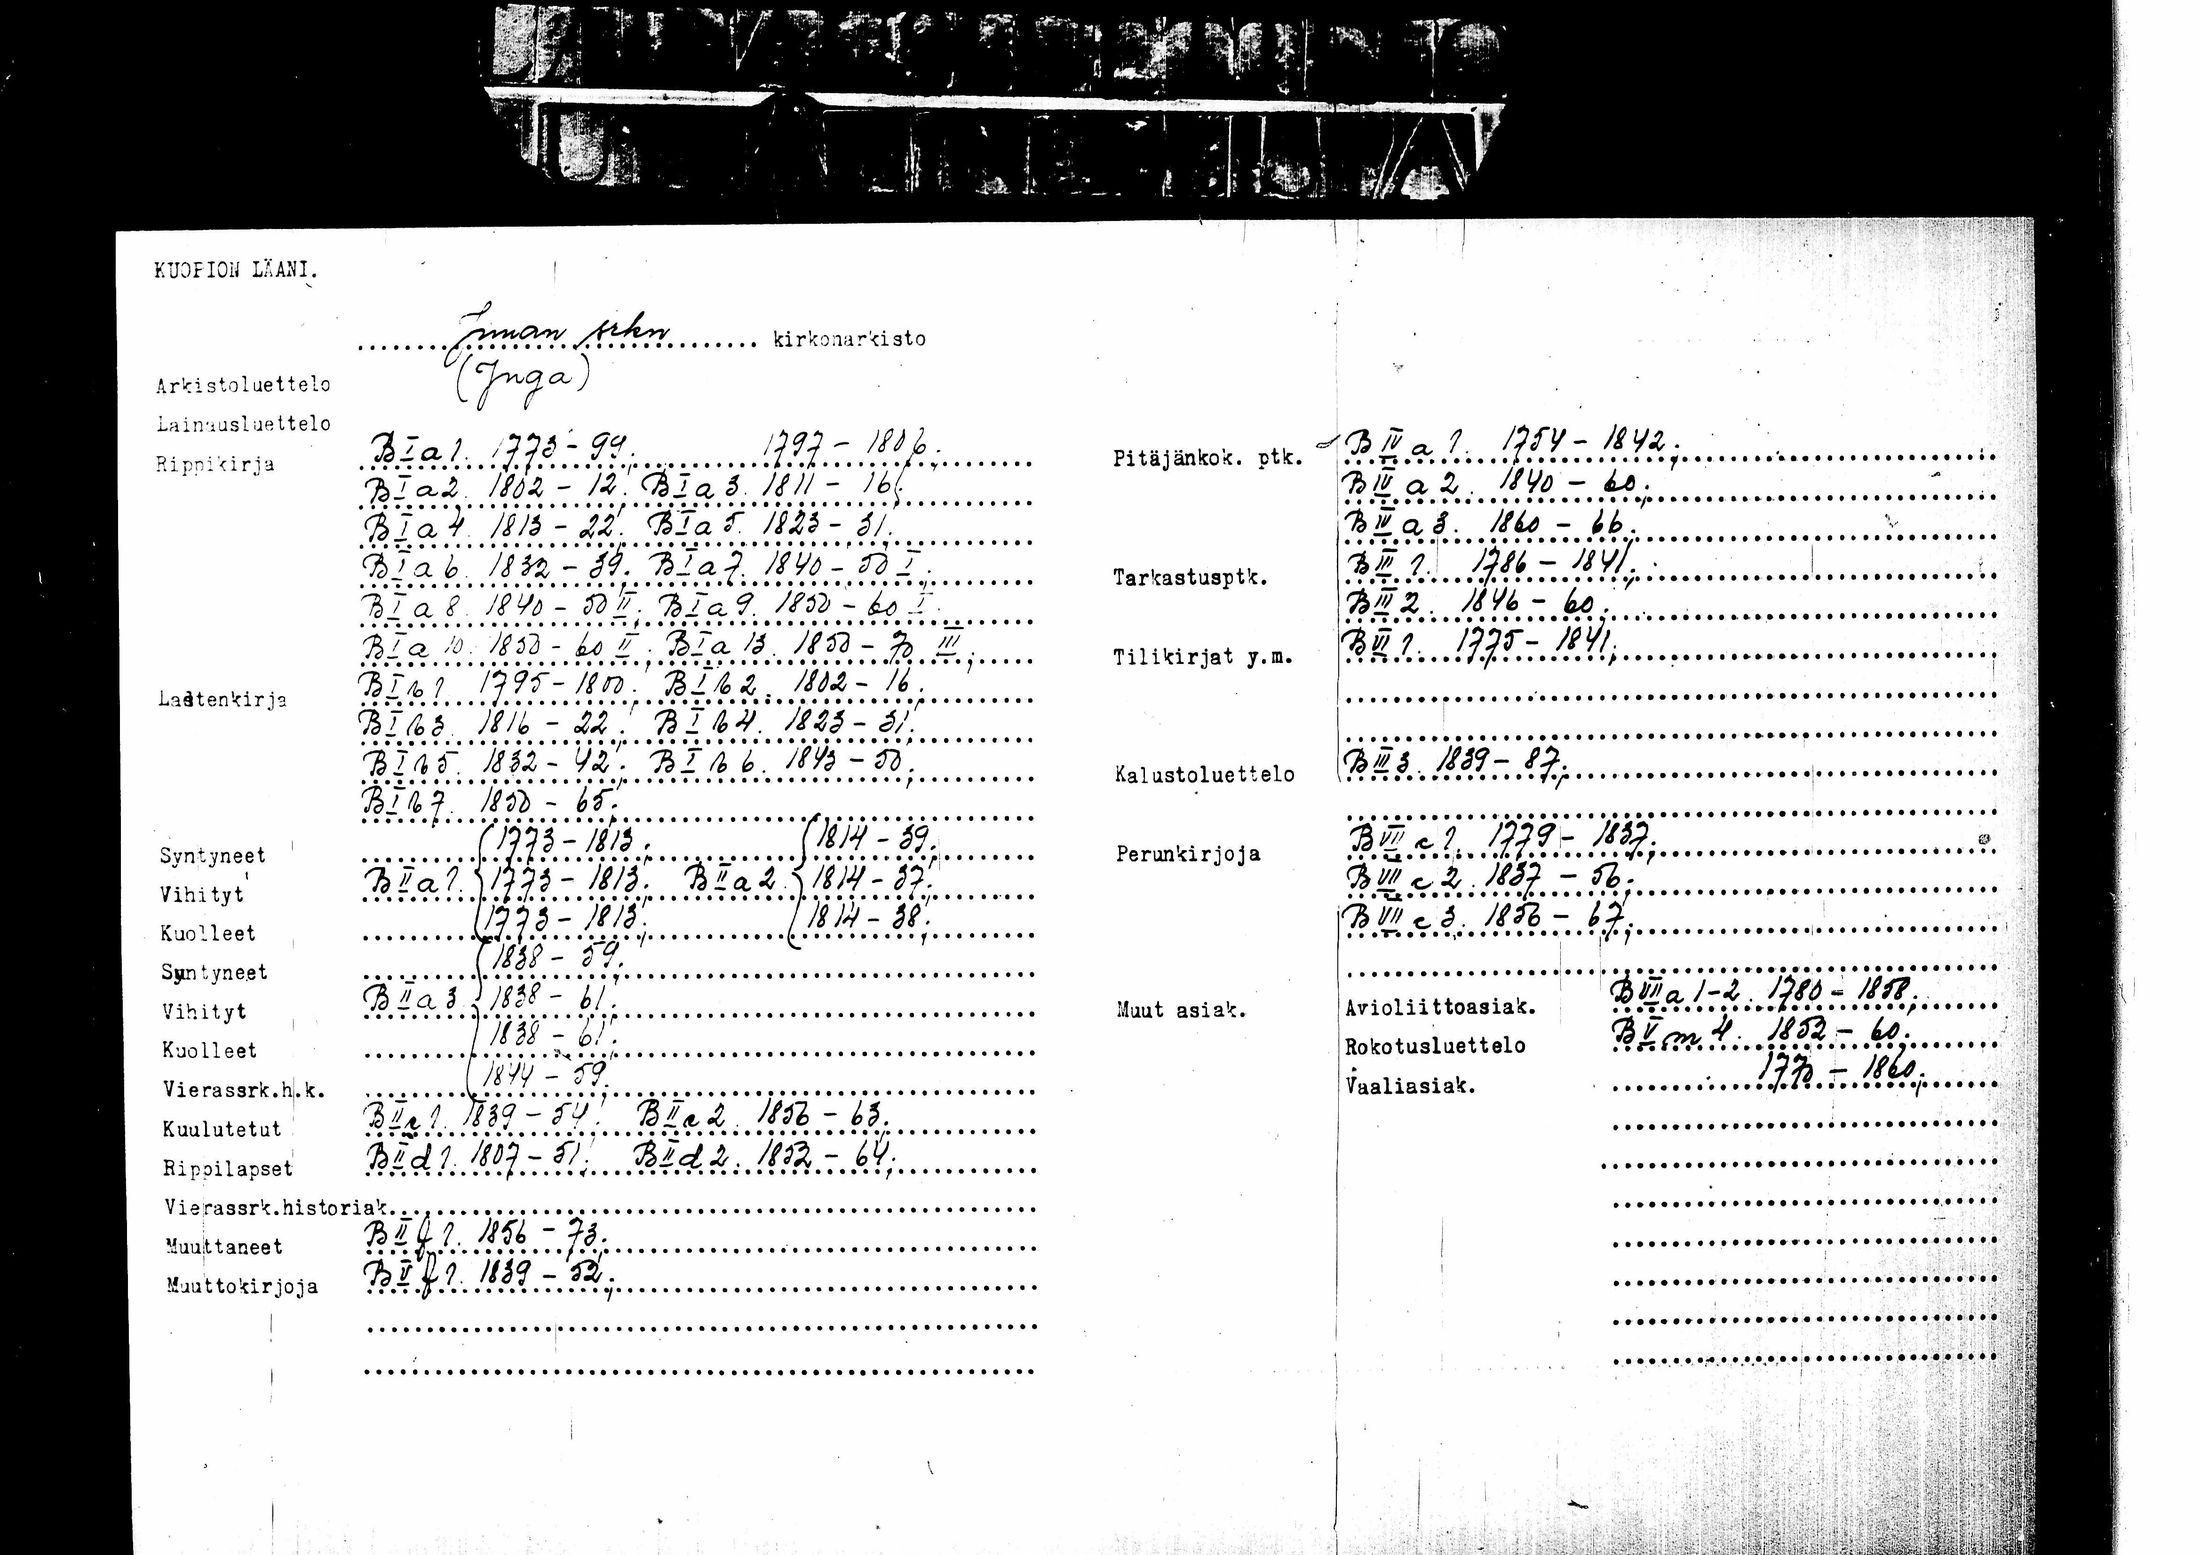 KUOPION LÄANI.
Innan srkn kirkonarkisto
(Inga)
Arkistoluettelo
Lainausluettelo
Rippikirja B I a 1. 1773 - 99. 1797 - 1806.
B I a 2. 1802 - 12. B I a 3. 1811 - 16.
B I a 4. 1813 - 22. B I a 5. 1823 - 31.
B I a 6. 1832 - 39. B I a 7. 1840 - 50 I.
B I a 8. 1840 - 50 II. B I a 9. 1850 - 60 I.
B I a 10. 1850 - 60 II. B I a 13. 1850 - 70 III.
Lastenkirja B I b 1. 1795 - 1800. B I b 2. 1802 - 16.
B I b 3. 1816 - 22. B I b 4. 1823 - 31.
B I b 5. 1832 - 42. B I b 6. 1843 - 50.
B I b 7. 1850 - 65.
Syntyneet 1773 - 1813. 1814 - 39.
Vihityt B II a 1. 1773 - 1813. B II a 2. 1814 - 37.
Kuolleet 1773 - 1813. 1814 - 38.
Syntyneet 1838 - 59.
Vihityt B II a 3 1838 - 61.
Kuolleet 1838 - 61.
Vierassrk.h.k. 1844 - 59.
Kuulutetut B II c 1. 1839 - 54. B II c 2. 1856 - 63.
Rippilapset B II d 1. 1807 - 51. B II d 2. 1852 - 64.
Vierassrk.historiak.
Muuttaneet B II f 1. 1856 - 73.
Muuttokirjoja B V f 1. 1839 - 52.
Pitäjänkok. ptk. B IV a 1. 1754 - 1842.
B IV a 2. 1840 - 60.
B IV a 3. 1860 - 66.
Tarkastusptk. B III 1. 1786 - 1841.
B III 2. 1846 - 60.
Tilikirjat y.m. B VI 1. 1775 - 1841.
Kalustoluettelo B III 3. 1839 - 87.
Perunkirjoja B VII c 1. 1779 - 1837.
B VII c 2. 1837 - 56.
B VII c 3. 1856 - 67.
Muut asiak. Avioliittoasiak. B VII a 1-2. 1780 - 1858.
Rokotusluettelo B V m 4. 1852 - 60.
Vaaliasiak. 1770 - 1860.